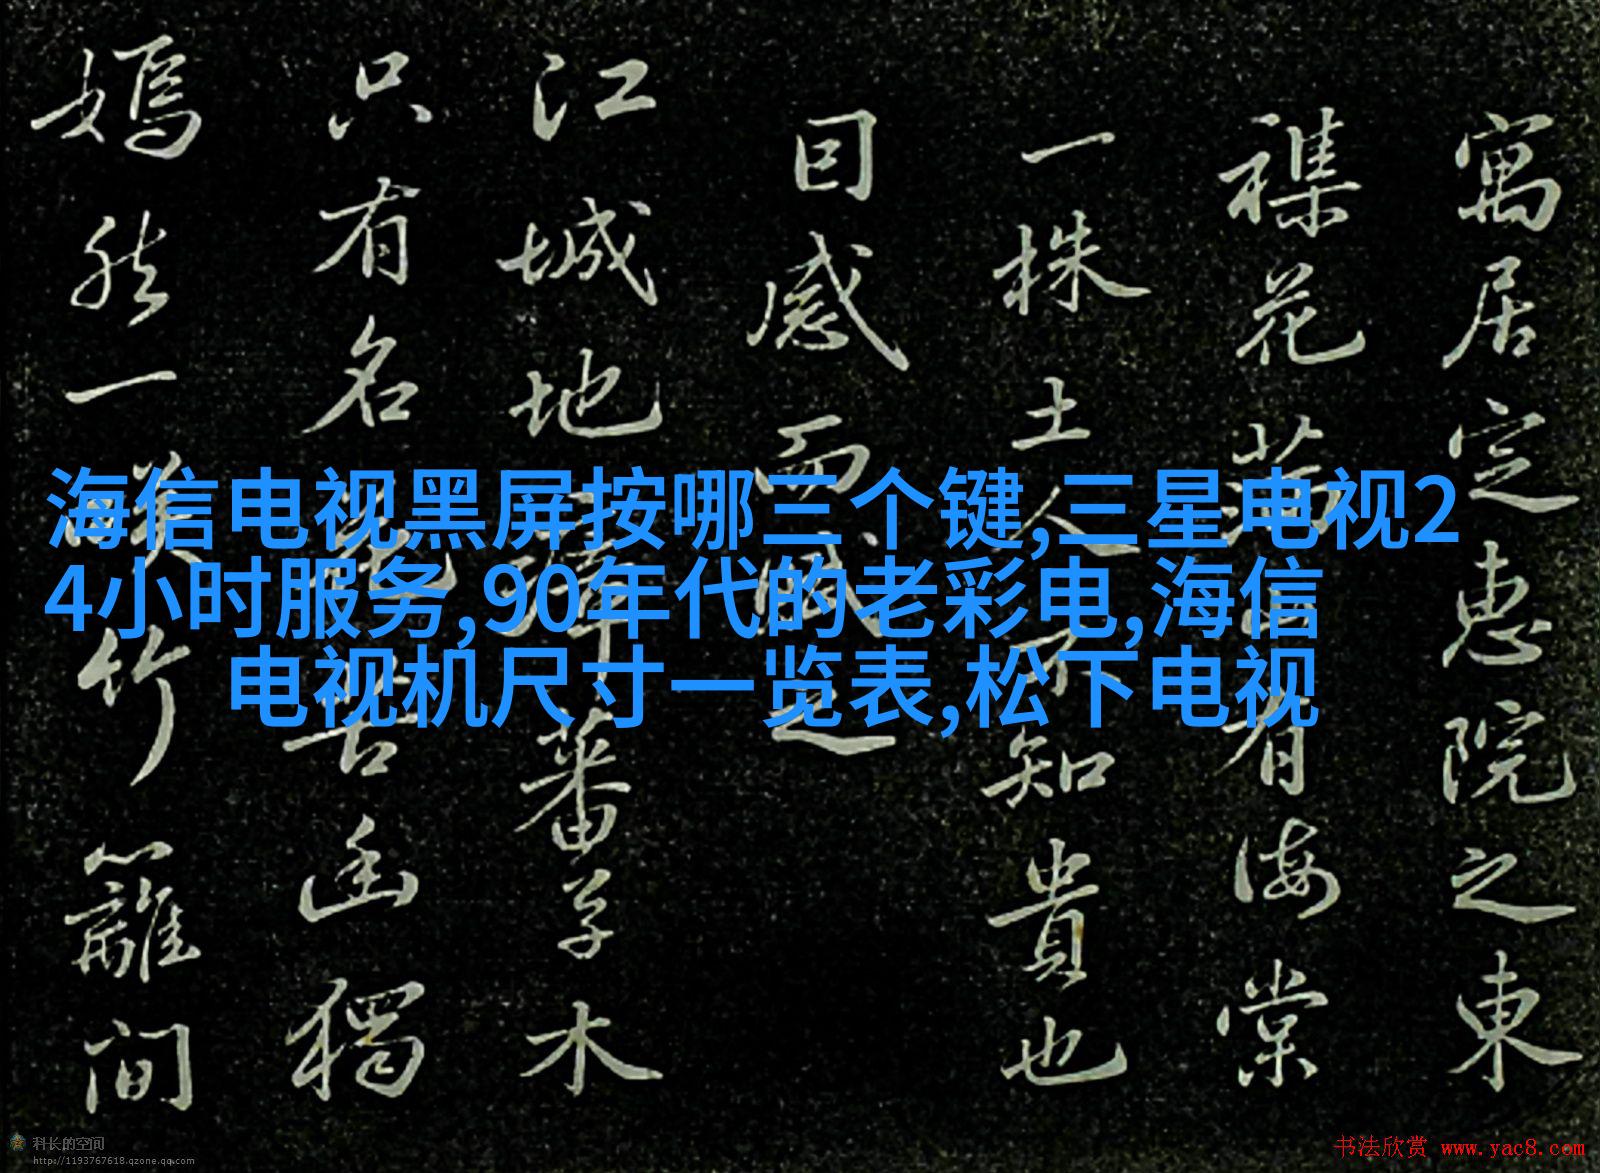 寓居定惠院之東
襍花滿山有海棠
一株土人不知貴也
囙感而之
江城地瘴蕃草木
只有名花苦幽獨
嫣然一笑竹籬間
海信电视黑屏按哪三个键,三星电视2
4小时服务,90年代的老彩电,海信
电视机尺寸一览表,松下电视
科长的空间
http://1193767618.qzone.qq.com
书法欣赏 www.yac8.com